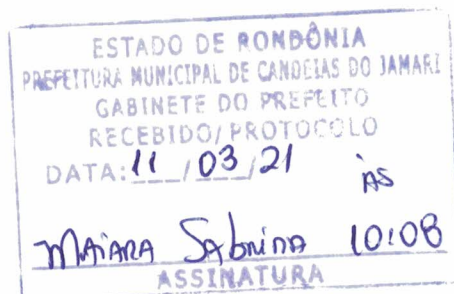 ESTADO DE RONDÔNIA
PREFEITURA MUNICIPAL DE CANDEIAS DO JAMARI
GABINETE DO PREFEITO
RECEBIDO/PROTOCOLO
DATA: 11 / 03 / 21 às
Maiara Sabrina 10:08
ASSINATURA